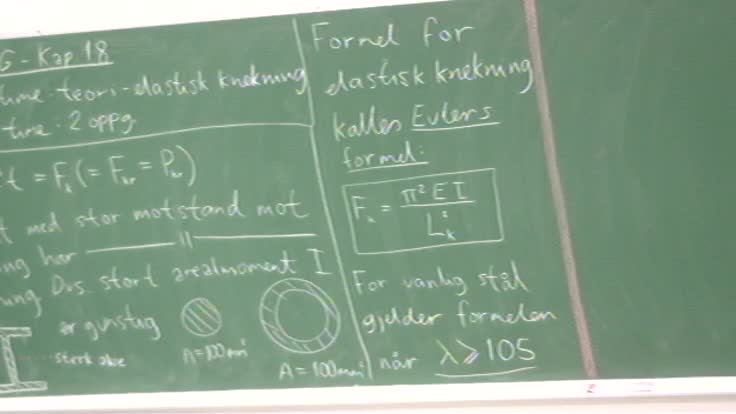 G - Kap 18
time: teori - elastisk knekning
time: 2 oppg.
t = Fk (= Fkr = Pkr)
t med stor motstand mot
ing har — " —
ung. Dvs. stort arealmoment I
er gunstig
sterk akse
A = 100 mm²
A = 100 mm²
Formel for
elastisk knekning
kalles Eulers
formel:
Fk = π² E I / Lk²
For vanlig stål
gjelder formelen
når λ ≥ 105